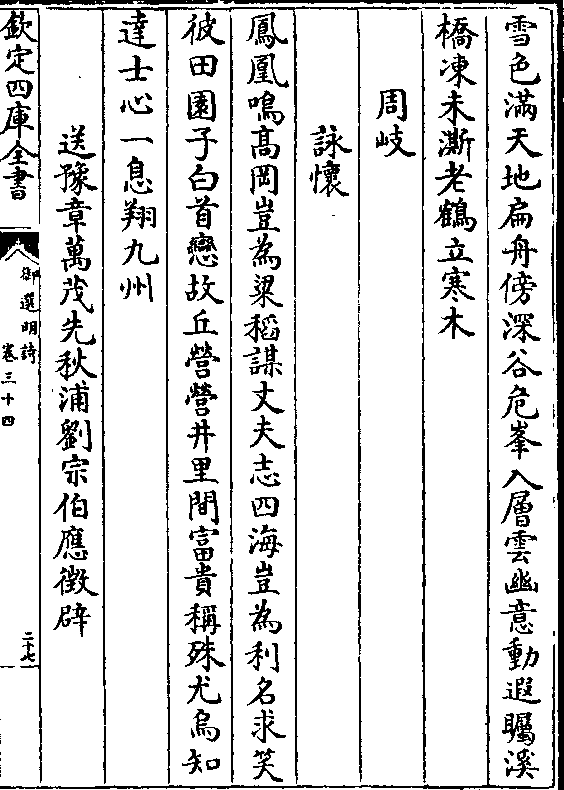 雪色滿天地扁舟傍深谷危峯入層雲幽意動遐矚溪
橋凍未澌老鶴立寒木
周岐
詠懷
鳳凰鳴髙岡豈為粱稻謀丈夫志四海豈為利名求笑
彼田園子白首戀故丘營營井里間富貴稱殊尤烏知
達士心一息翔九州
送豫章萬茂先秋浦劉宗伯應徴辟
欽定四庫全書
御選明詩
卷三十四
二十七